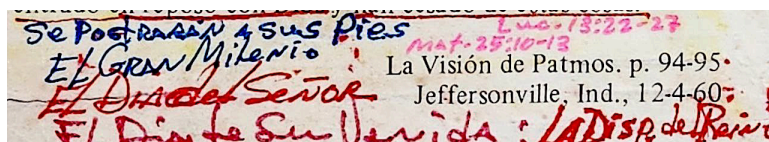 entrado en reposo con
Se Postrarán a sus Pies
Luc. 13:22-27
Mat. 25:10-13
El Gran Milenio
La Visión de Patmos. p. 94-95.
El Dia del Señor
Jeffersonville, Ind., 12-4-60.
El Dia de Su Venida : La Disp. del Reino